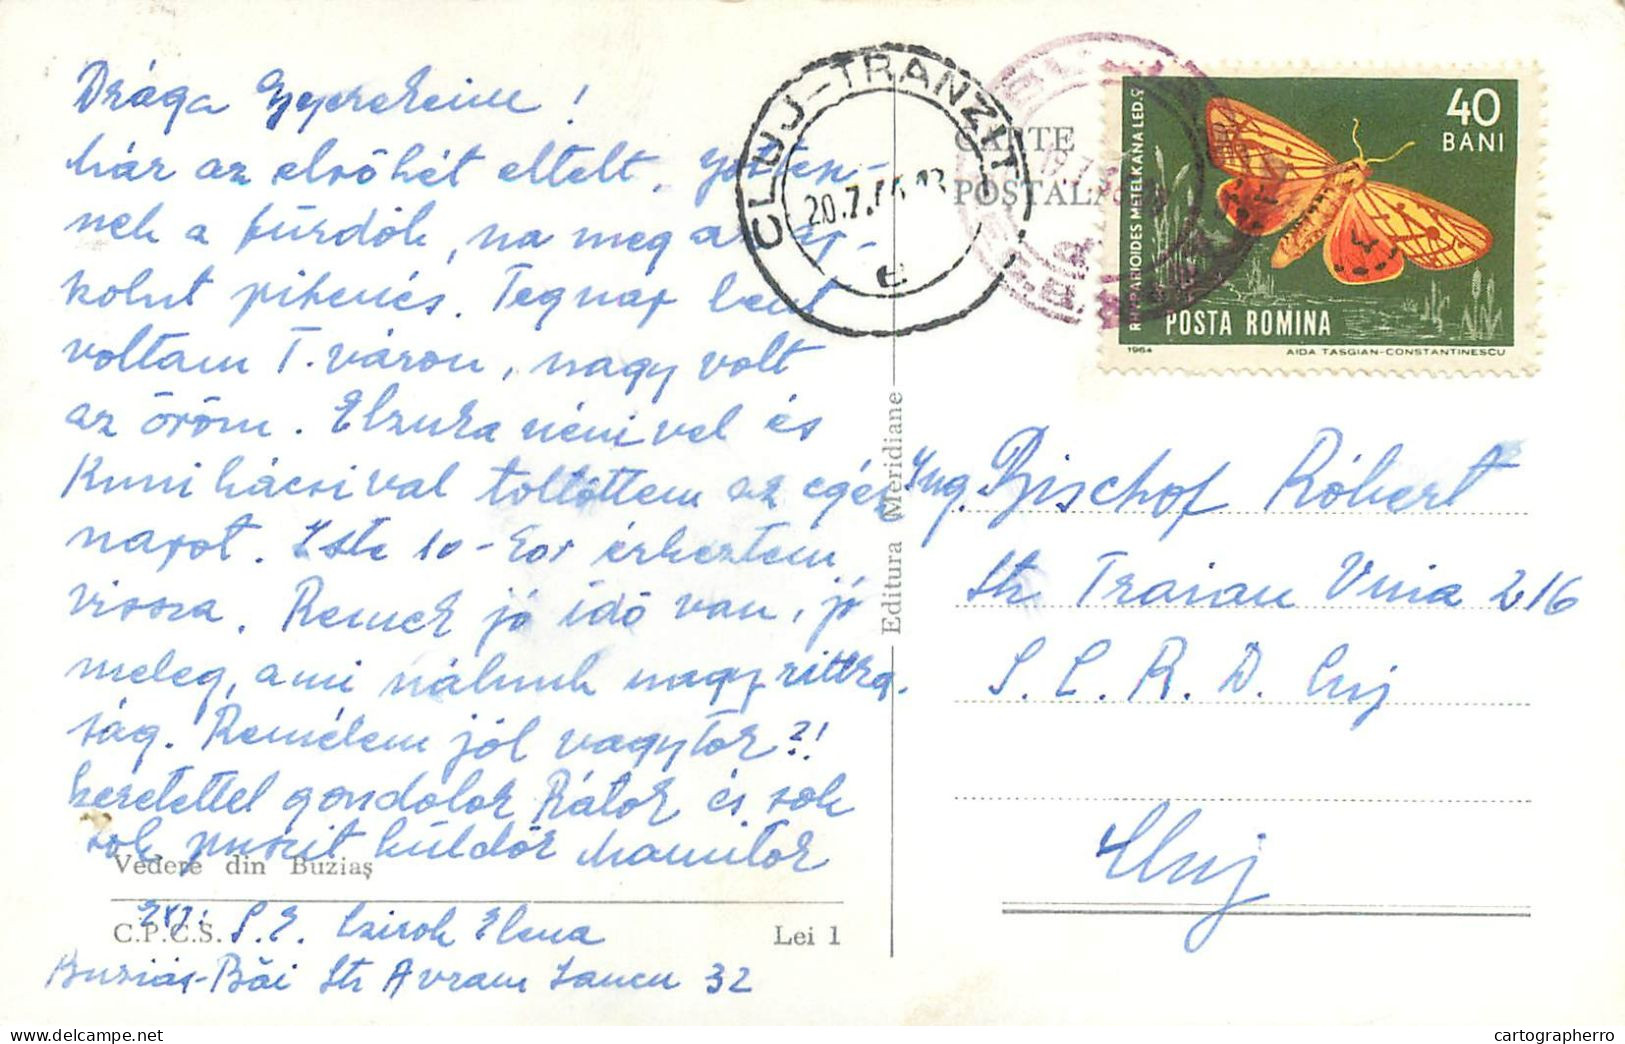 Drága Gyerekeim!
Már az első hét eltelt. Jót tesz-
nek a fürdők, na meg az
pihenés. Tegnap bent
voltam T.váron, nagy volt
az öröm. nénivel és
Kuni bácsival töltöttem az egész
napot. Este 10-kor érkeztem
vissza. Remek jó idő van, jó
meleg, ami nálunk nagy ritka-
ság. Remélem jól vagytok?!
Szeretettel gondolok Rátok és sok
sok puszit küldök Mamitok
Vedere din Buziaș
Exp: P.E. Elena
C.P.C.S.
Lei 1
Buziás-Băi Str Avram Iancu 32
Editura Meridiane
CLUJ-TRANZIT
20.7.
e
CARTE
POSTALĂ
19.7.
40
BANI
RHYPARIOIDES METELKANA LED.♀
POSTA ROMINA
1964
AIDA TASGIAN-CONSTANTINESCU
Ing. Bischof Róbert
Str. Traian Vuia 216
S. C. R. D. Cluj
Cluj
delcampe.net
cartographerro